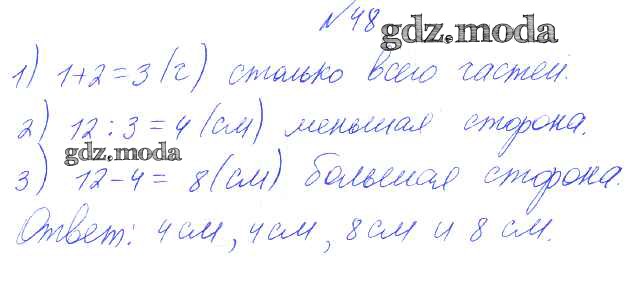 №48
gdz.moda
1) 1+2=3 (ч) столько всего частей.
2) 12:3=4 (см) меньшая сторона.
gdz.moda
3) 12-4= 8 (см) большая сторона.
Ответ: 4 см, 4 см, 8 см и 8 см.